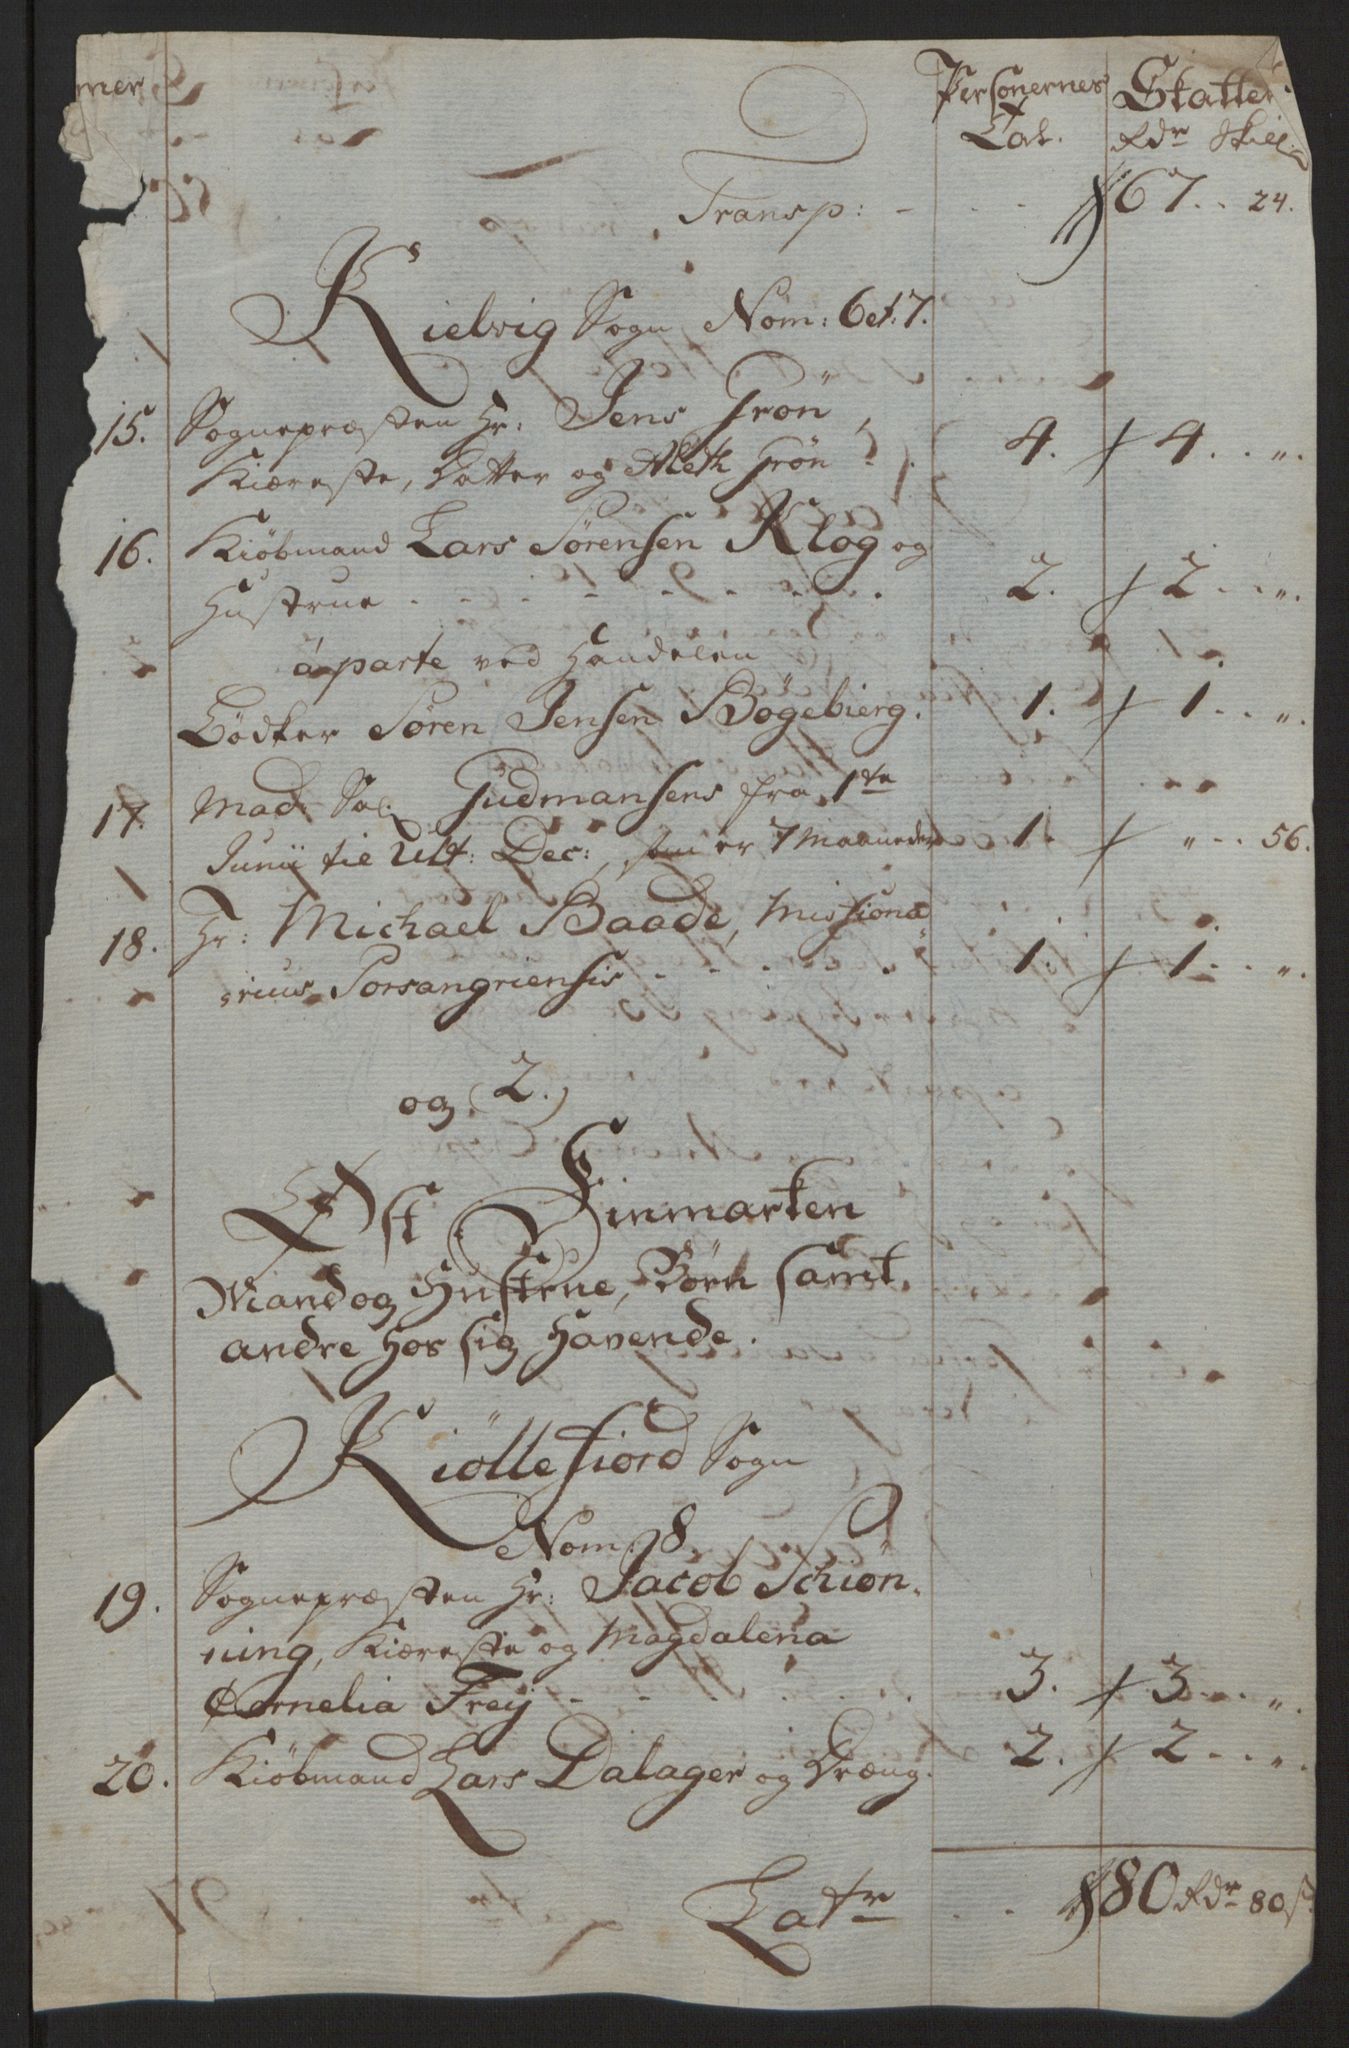 mer
Personernes Skatter
Tal. Rdr Skill
Transp: - - - 67 . . 24.
Kielvig Sogn Nom: 6 et 7.
15. Sognepræsten Hr: Jens Grön,
Kiæreste, Datter og Aleth Grön - . 4. 4 . . „.
16. Kiöbmand Lars Sörensen Klog og
Hustrue . - . - . - . - . 2. 2 - . „.
á parte ved Handelen
Bödker Sören Jensen Bögebierg. 1. 1 . . „.
17. Mad: Sal: Gudmansens fra 1te
Junii til Ult: Dec:, som er 7 Maaneder 1. „ - . 56.
18. Hr: Michael Baade, Missiona
rius Porsangriensis - . - . - . 1. 1 . . „.
og 2.)
Öst - Finmarken
Mand og Hustrue, Börn samt
andre hos sig Havende.
Kiöllefiord Sogn
Nom: 8.
19. Sognepræsten Hr: Jacob Schiön-
ning, Kiæreste og Magdalena
Cornelia Freij - . - . - . 3. 3 . . „.
20. Kiöbmand Lars Dalager og Dræng. 2. 2 - . „.
Latr - . . 80 Rdr 80 s